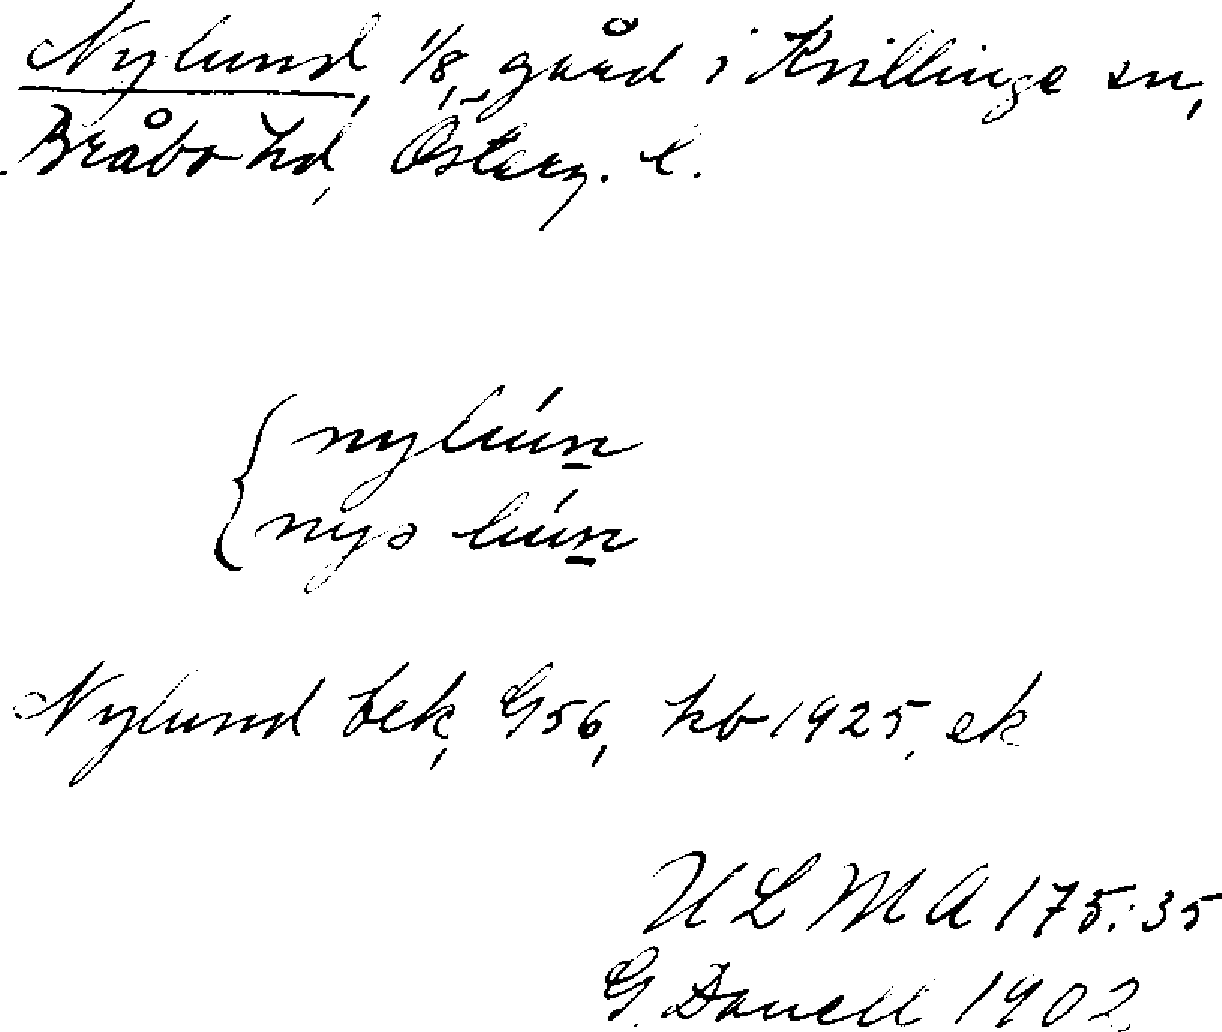 Nylund, 1/8, gård i Kvillinge sn,
Bråbo hd, Österg. l.
nylún̲
nyə lún̲
Nylund bek, G56, hb 1925, ek
ULMA 175:35
G. Danell 1902